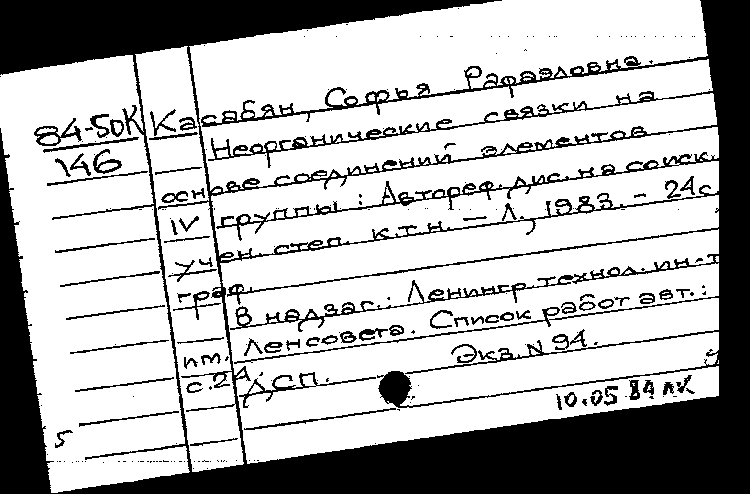 Касабян, Софья Рафаэловна.
84-50К
146
Неорганические связки на
основе соединений элементов
IV группы : Автореф. дис. на соиск.
учен. степ. к.т.н. — Л., 1983. - 24с.
граф.
В надзаг.: Ленингр. технол. ин-т
им. Ленсовета. Список работ авт.:
с.24.
ДСП. Экз. N 94.
10.05 84
5